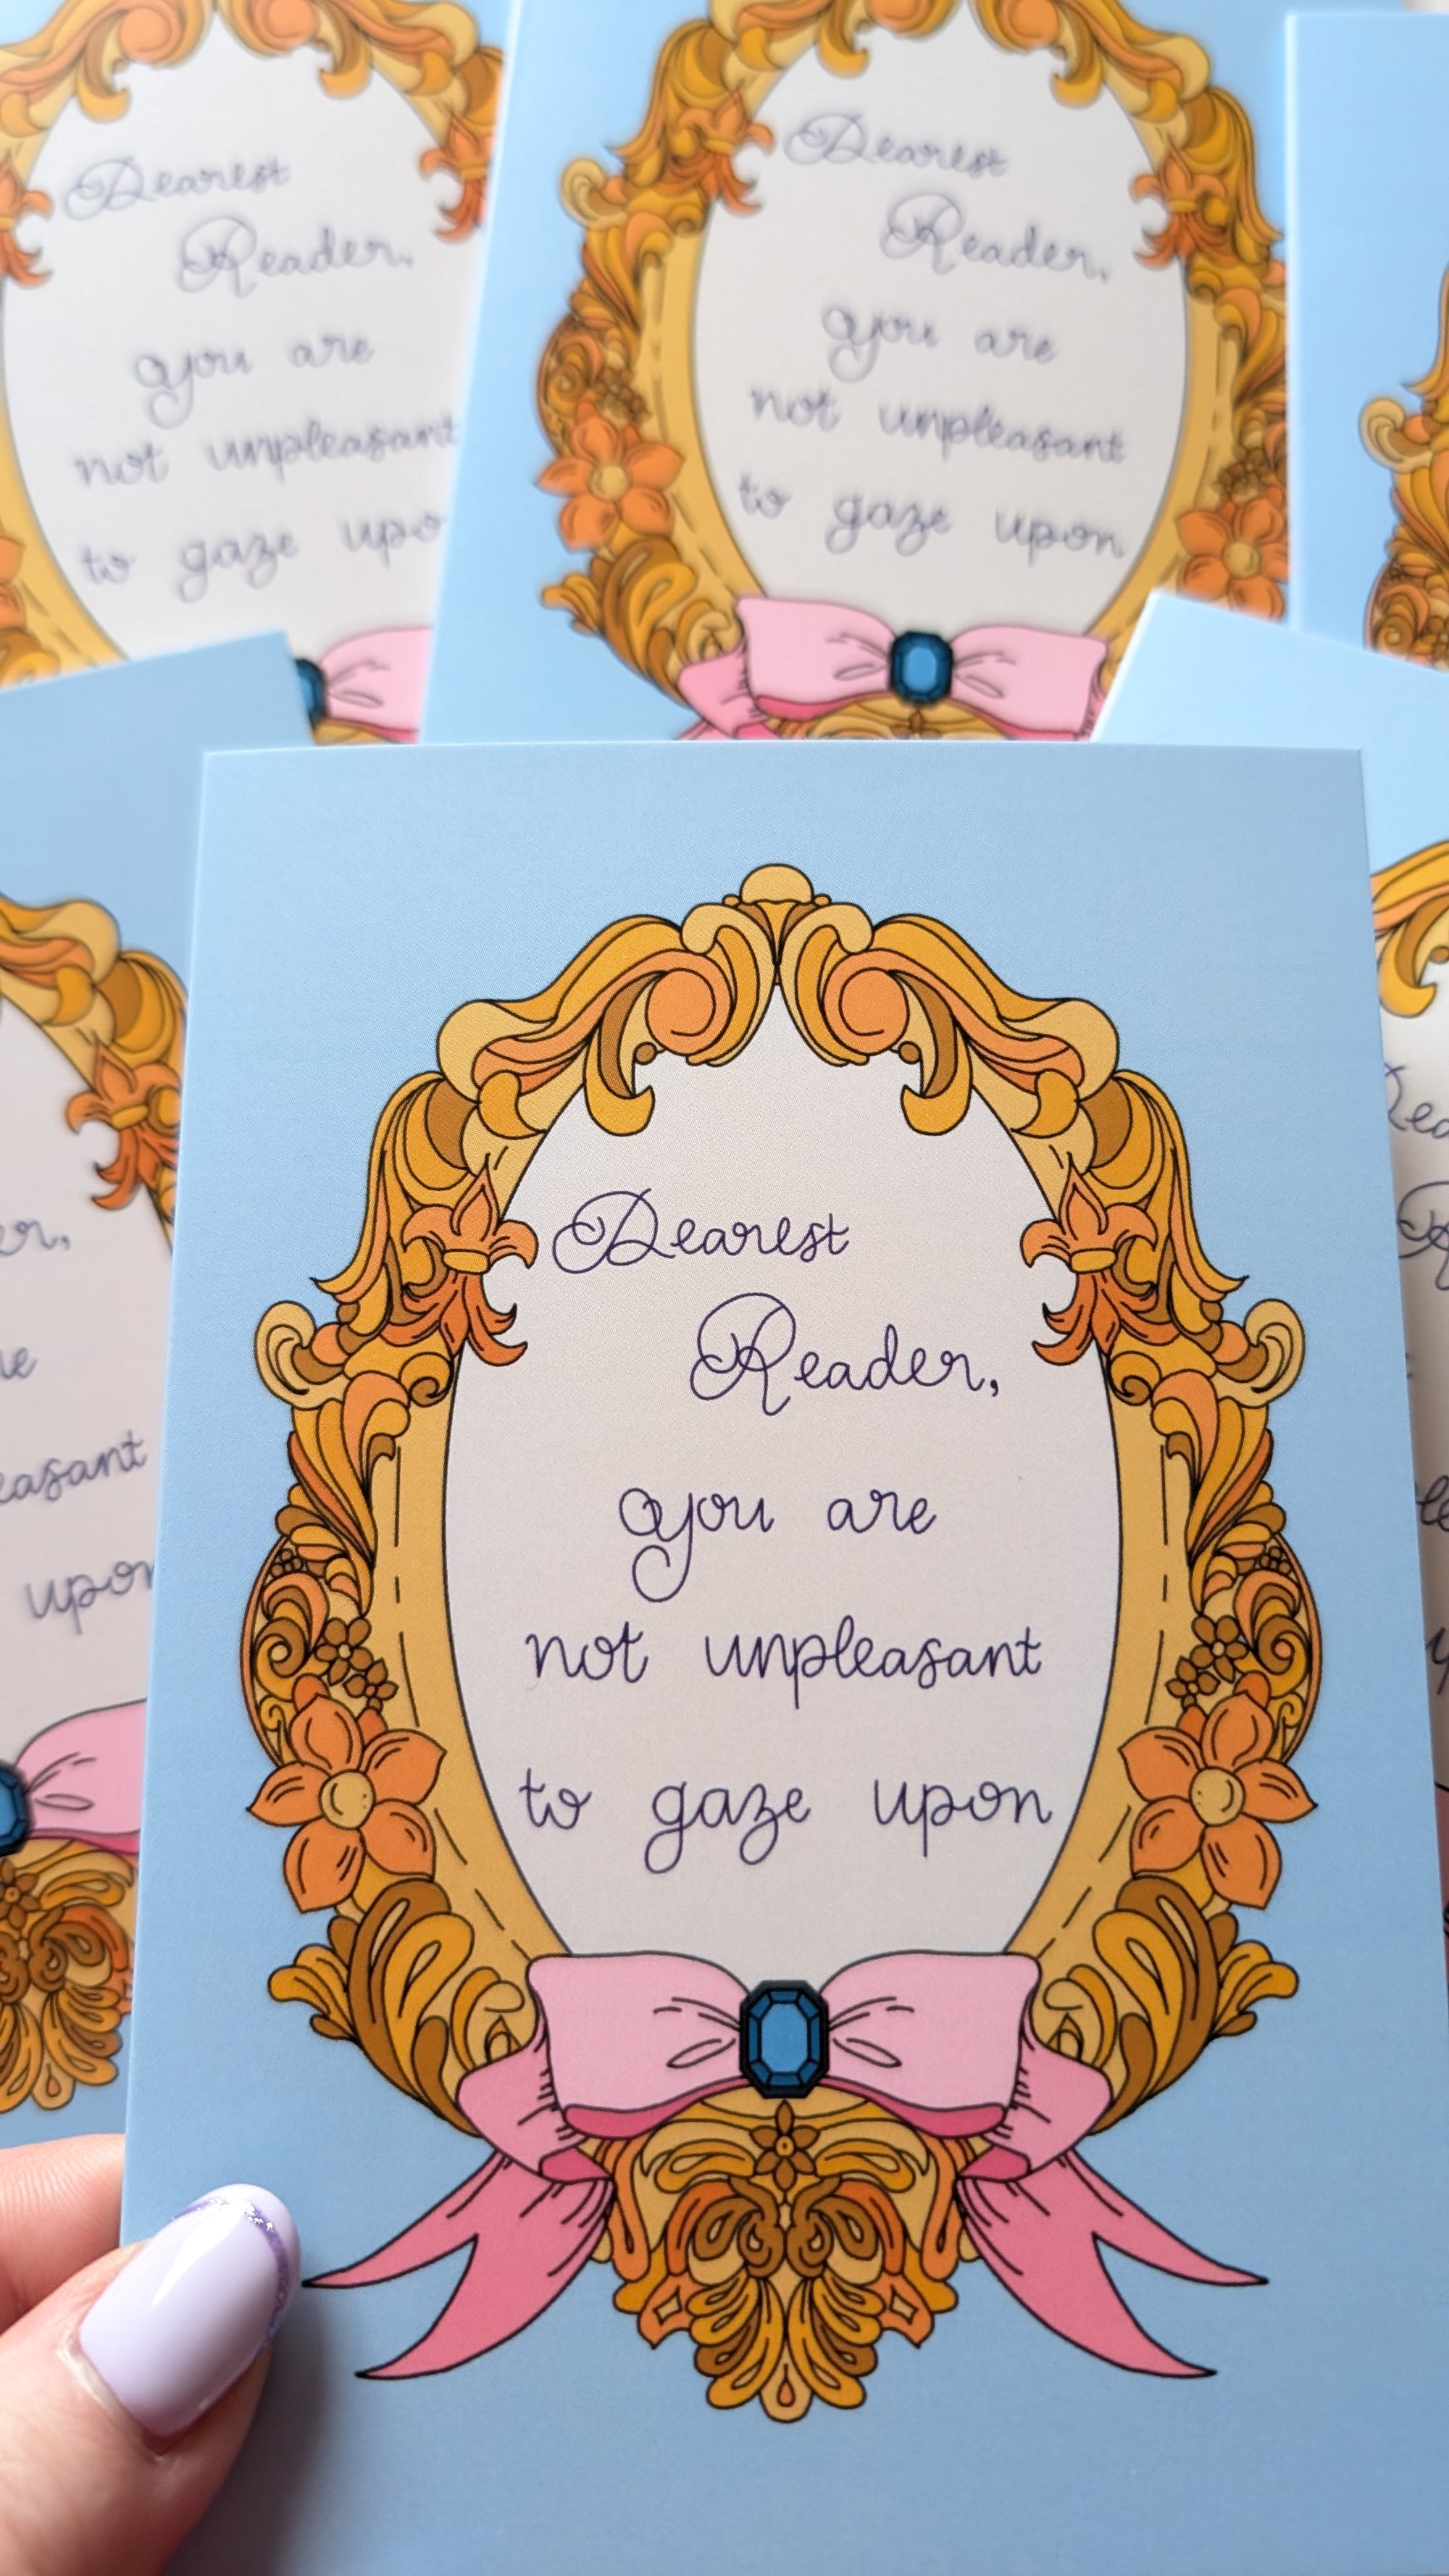 Dearest
Reader,
you are
not unpleasant
to gaze upon
Dearest
Reader,
you are
not unpleasant
to gaze upon
Dearest
Reader,
you are
not unpleasant
to gaze upon